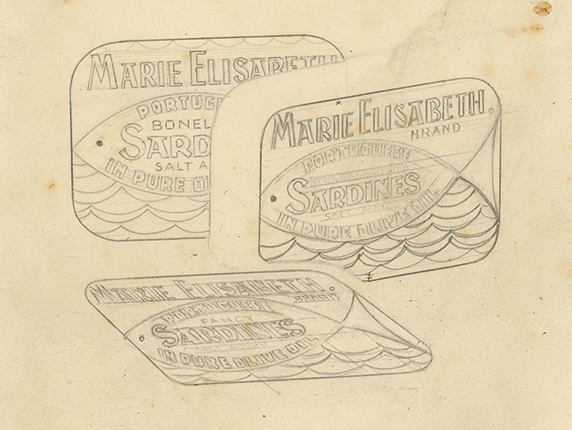 MARIE ELISABETH
PORTUG
BONEL
SARD
SALT A
IN PURE OI
MARIE ELISABETH.
BRAND
PORTUGUESE
SARDINES
SALT
IN PURE OLIVE OIL
MARIE ELISABETH.
BRAND
PORTUGUESE
FANCY
SARDINES
IN PURE OLIVE OIL